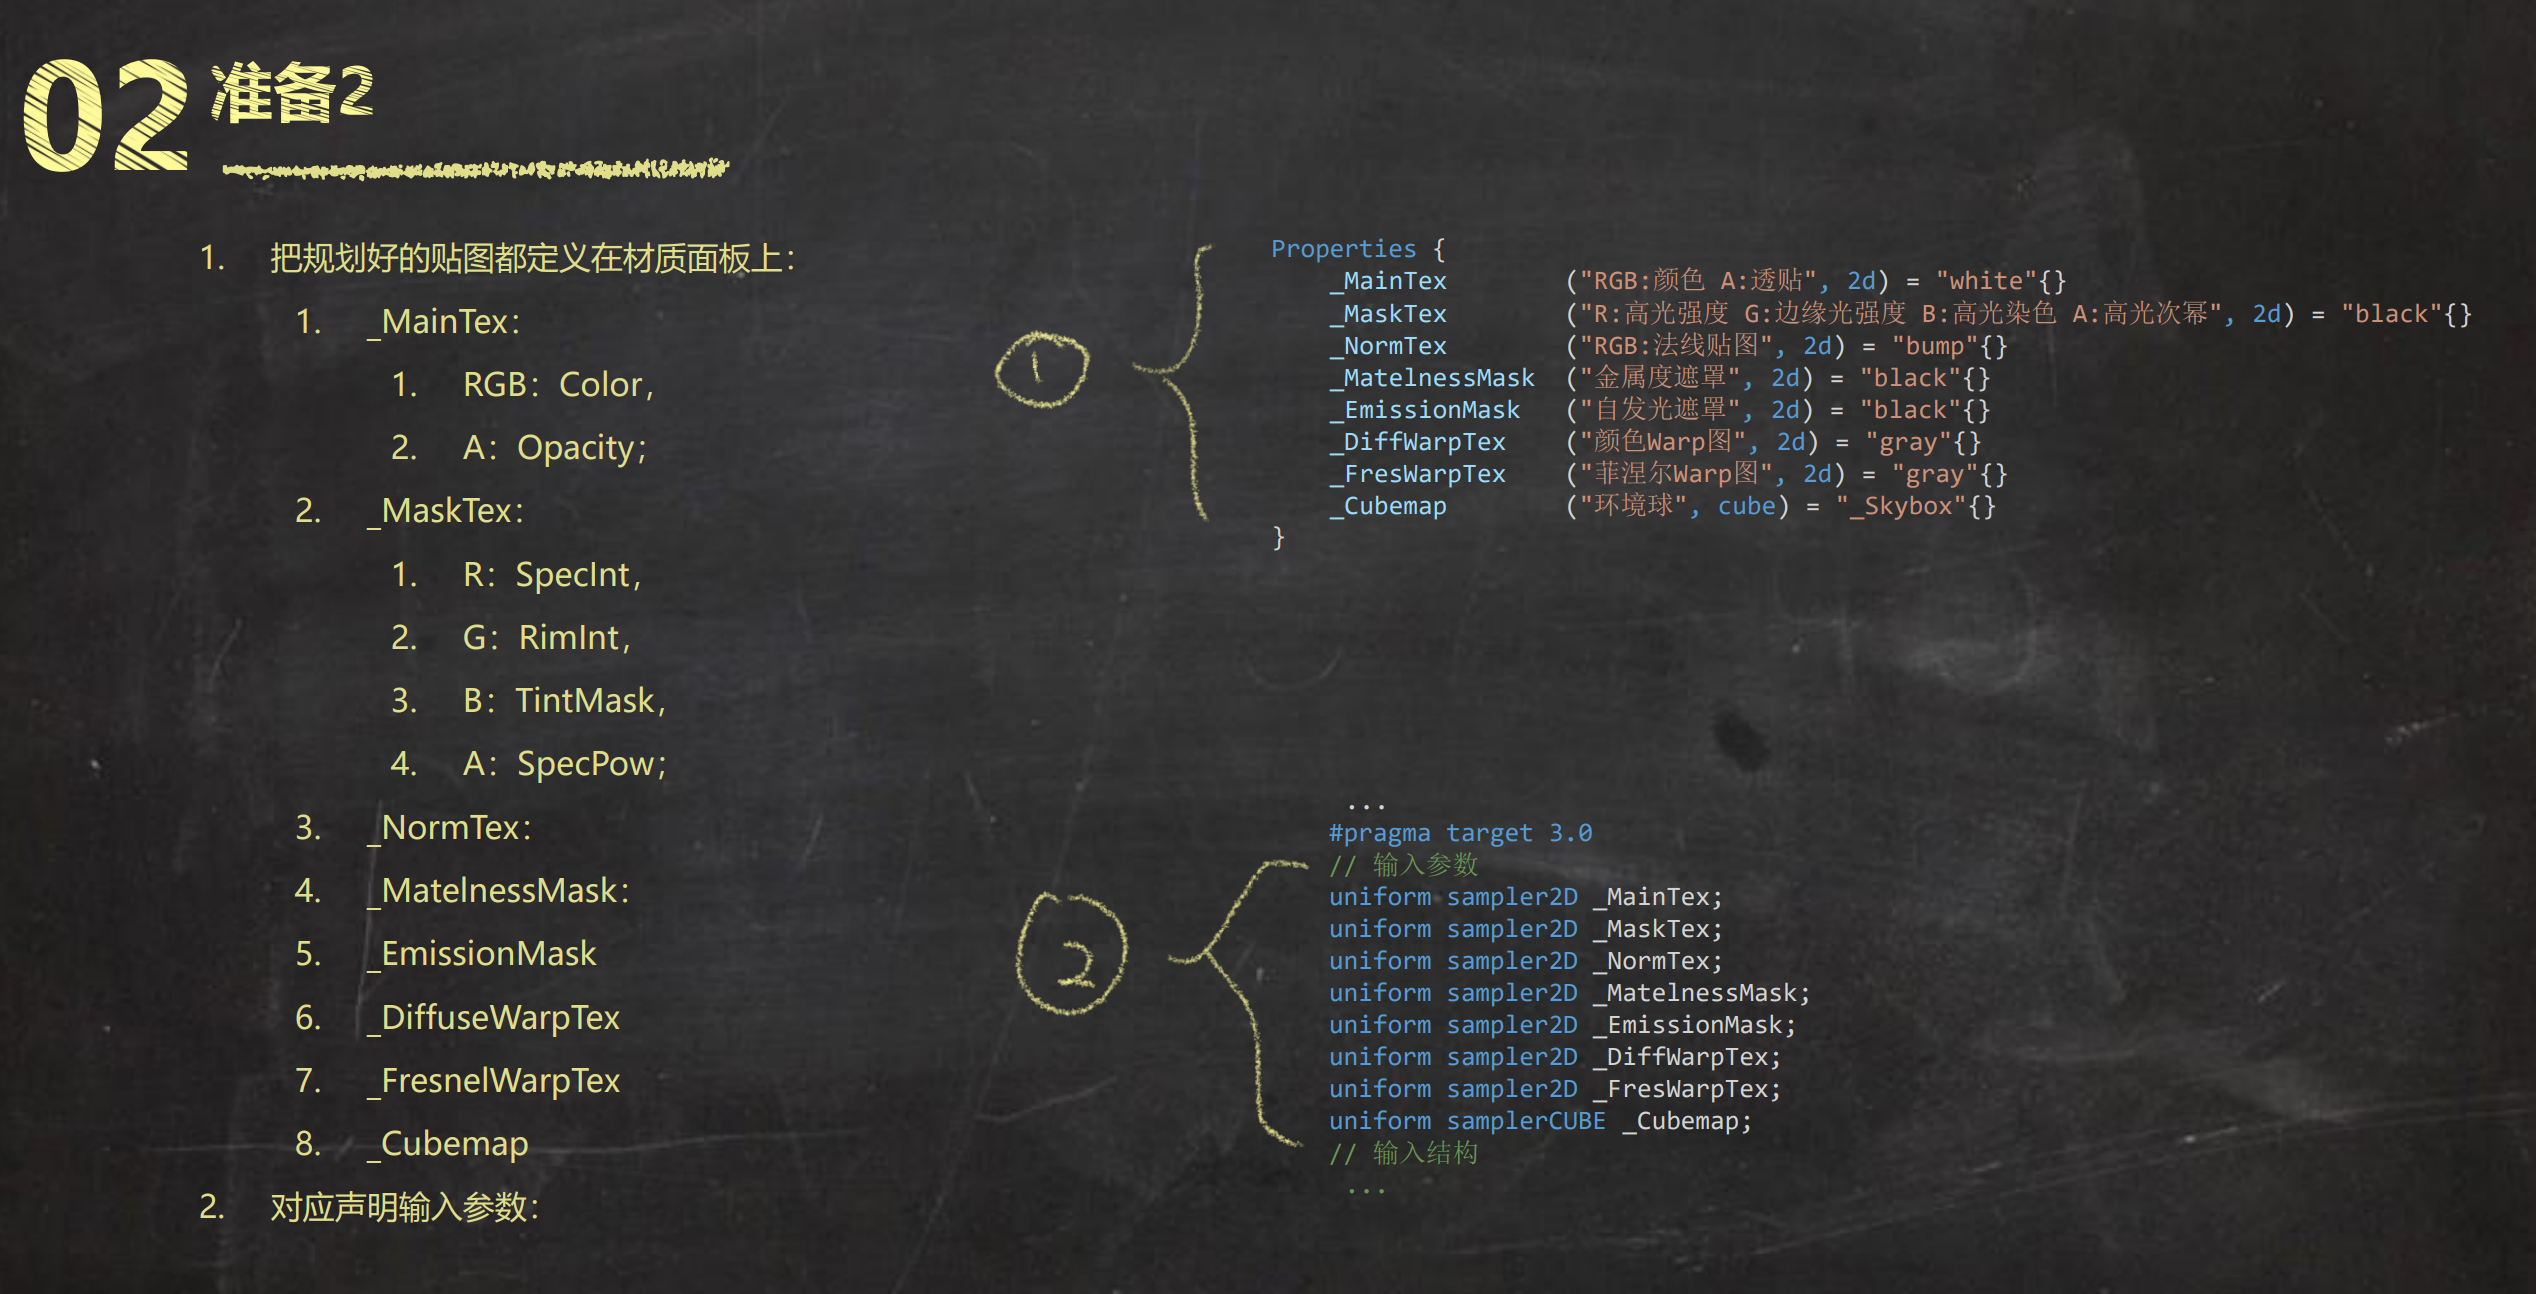 02 准备2
1. 把规划好的贴图都定义在材质面板上：
1. _MainTex：
1. RGB：Color，
2. A：Opacity；
2. _MaskTex：
1. R：SpecInt，
2. G：RimInt，
3. B：TintMask，
4. A：SpecPow；
3. _NormTex：
4. _MatelnessMask：
5. _EmissionMask
6. _DiffuseWarpTex
7. _FresnelWarpTex
8. _Cubemap
2. 对应声明输入参数：
1
Properties {
_MainTex ("RGB:颜色 A:透贴", 2d) = "white"{}
_MaskTex ("R:高光强度 G:边缘光强度 B:高光染色 A:高光次幂", 2d) = "black"{}
_NormTex ("RGB:法线贴图", 2d) = "bump"{}
_MatelnessMask ("金属度遮罩", 2d) = "black"{}
_EmissionMask ("自发光遮罩", 2d) = "black"{}
_DiffWarpTex ("颜色Warp图", 2d) = "gray"{}
_FresWarpTex ("菲涅尔Warp图", 2d) = "gray"{}
_Cubemap ("环境球", cube) = "_Skybox"{}
}
2
...
#pragma target 3.0
// 输入参数
uniform sampler2D _MainTex;
uniform sampler2D _MaskTex;
uniform sampler2D _NormTex;
uniform sampler2D _MatelnessMask;
uniform sampler2D _EmissionMask;
uniform sampler2D _DiffWarpTex;
uniform sampler2D _FresWarpTex;
uniform samplerCUBE _Cubemap;
// 输入结构
...